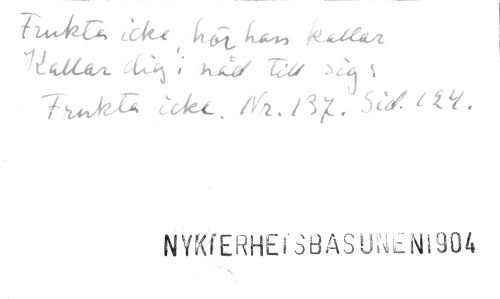 Frukta icke, hör han kallar
Kallar dig i nåd till sig:
Frukta icke. Nr. 137. Sid. 124.
NYKTERHETSBASUNEN1904